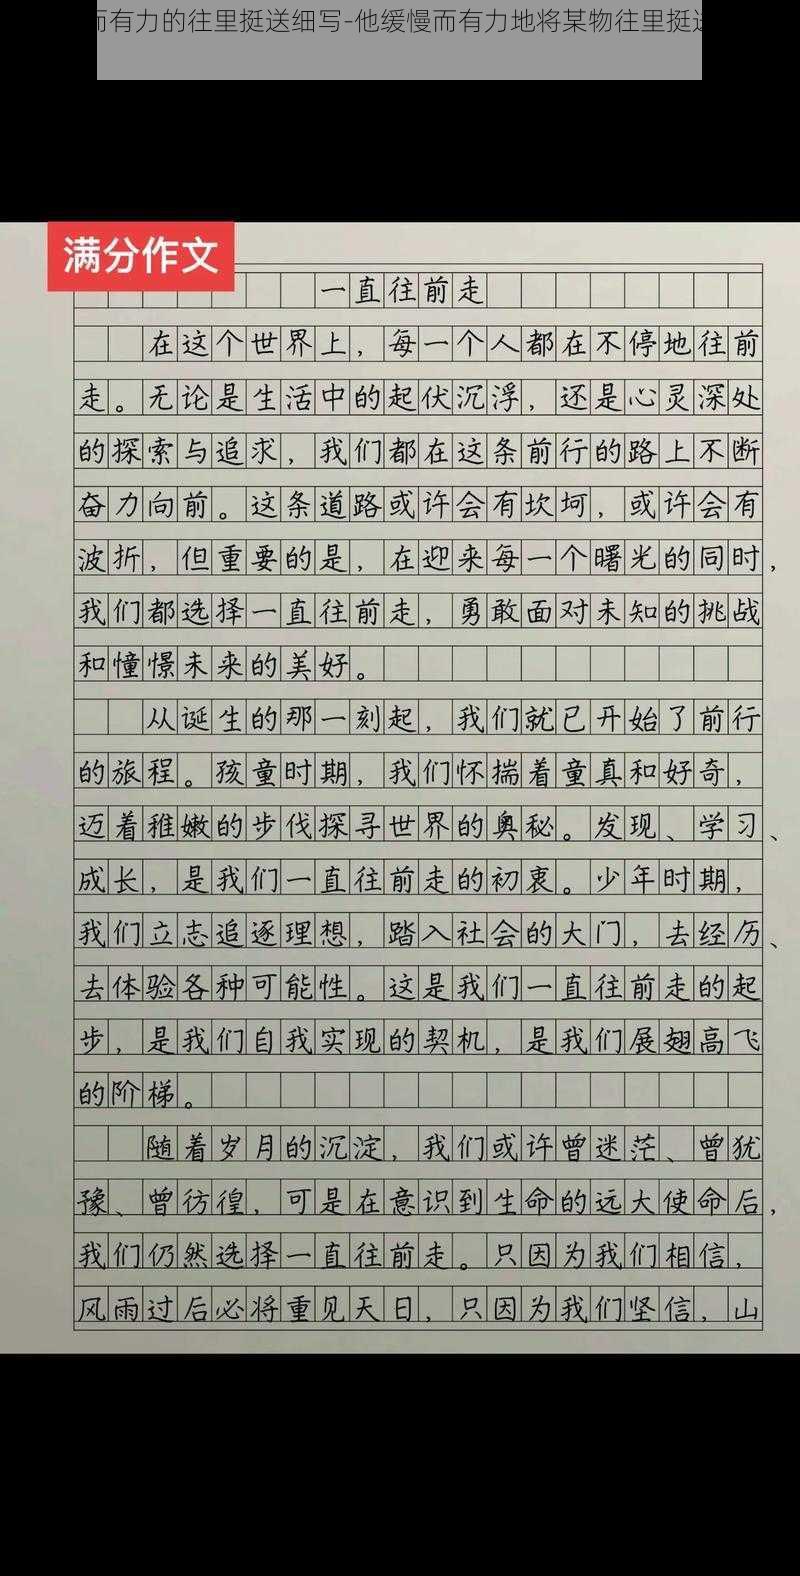 而有力的往里挺送细写-他缓慢而有力地将某物往里挺送
满分作文
一直往前走
在这个世界上，每一个人都在不停地往前
走。无论是生活中的起伏沉浮，还是心灵深处
的探索与追求，我们都在这条前行的路上不断
奋力向前。这条道路或许会有坎坷，或许会有
波折，但重要的是，在迎来每一个曙光的同时，
我们都选择一直往前走，勇敢面对未知的挑战
和憧憬未来的美好。
从诞生的那一刻起，我们就已开始了前行
的旅程。孩童时期，我们怀揣着童真和好奇，
迈着稚嫩的步伐探寻世界的奥秘。发现、学习、
成长，是我们一直往前走的初衷。少年时期，
我们立志追逐理想，踏入社会的大门，去经历、
去体验各种可能性。这是我们一直往前走的起
步，是我们自我实现的契机，是我们展翅高飞
的阶梯。
随着岁月的沉淀，我们或许曾迷茫、曾犹
豫、曾彷徨，可是在意识到生命的远大使命后，
我们仍然选择一直往前走。只因为我们相信，
风雨过后必将重见天日，只因为我们坚信，山